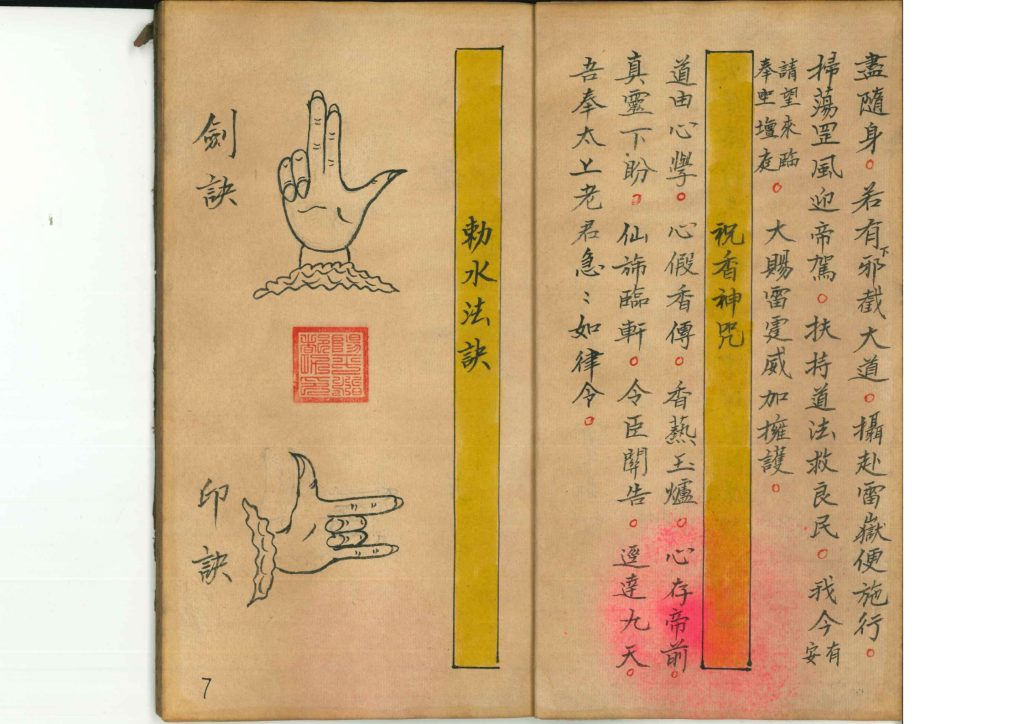 盡隨身。若有下邪截大道。攝赴雷嶽便施行。
掃蕩罡風迎帝駕。扶持道法救良民。我今有安
請望來臨奉聖壇庭。大賜雷霆威加擁護。
祝香神咒
道由心學。心假香傳。香爇玉爐。心存帝前。
真靈下盼。仙旆臨軒。令臣關告。逕達九天。
吾奉太上老君急〻如律令。
勅水法訣
劍訣
印訣
7